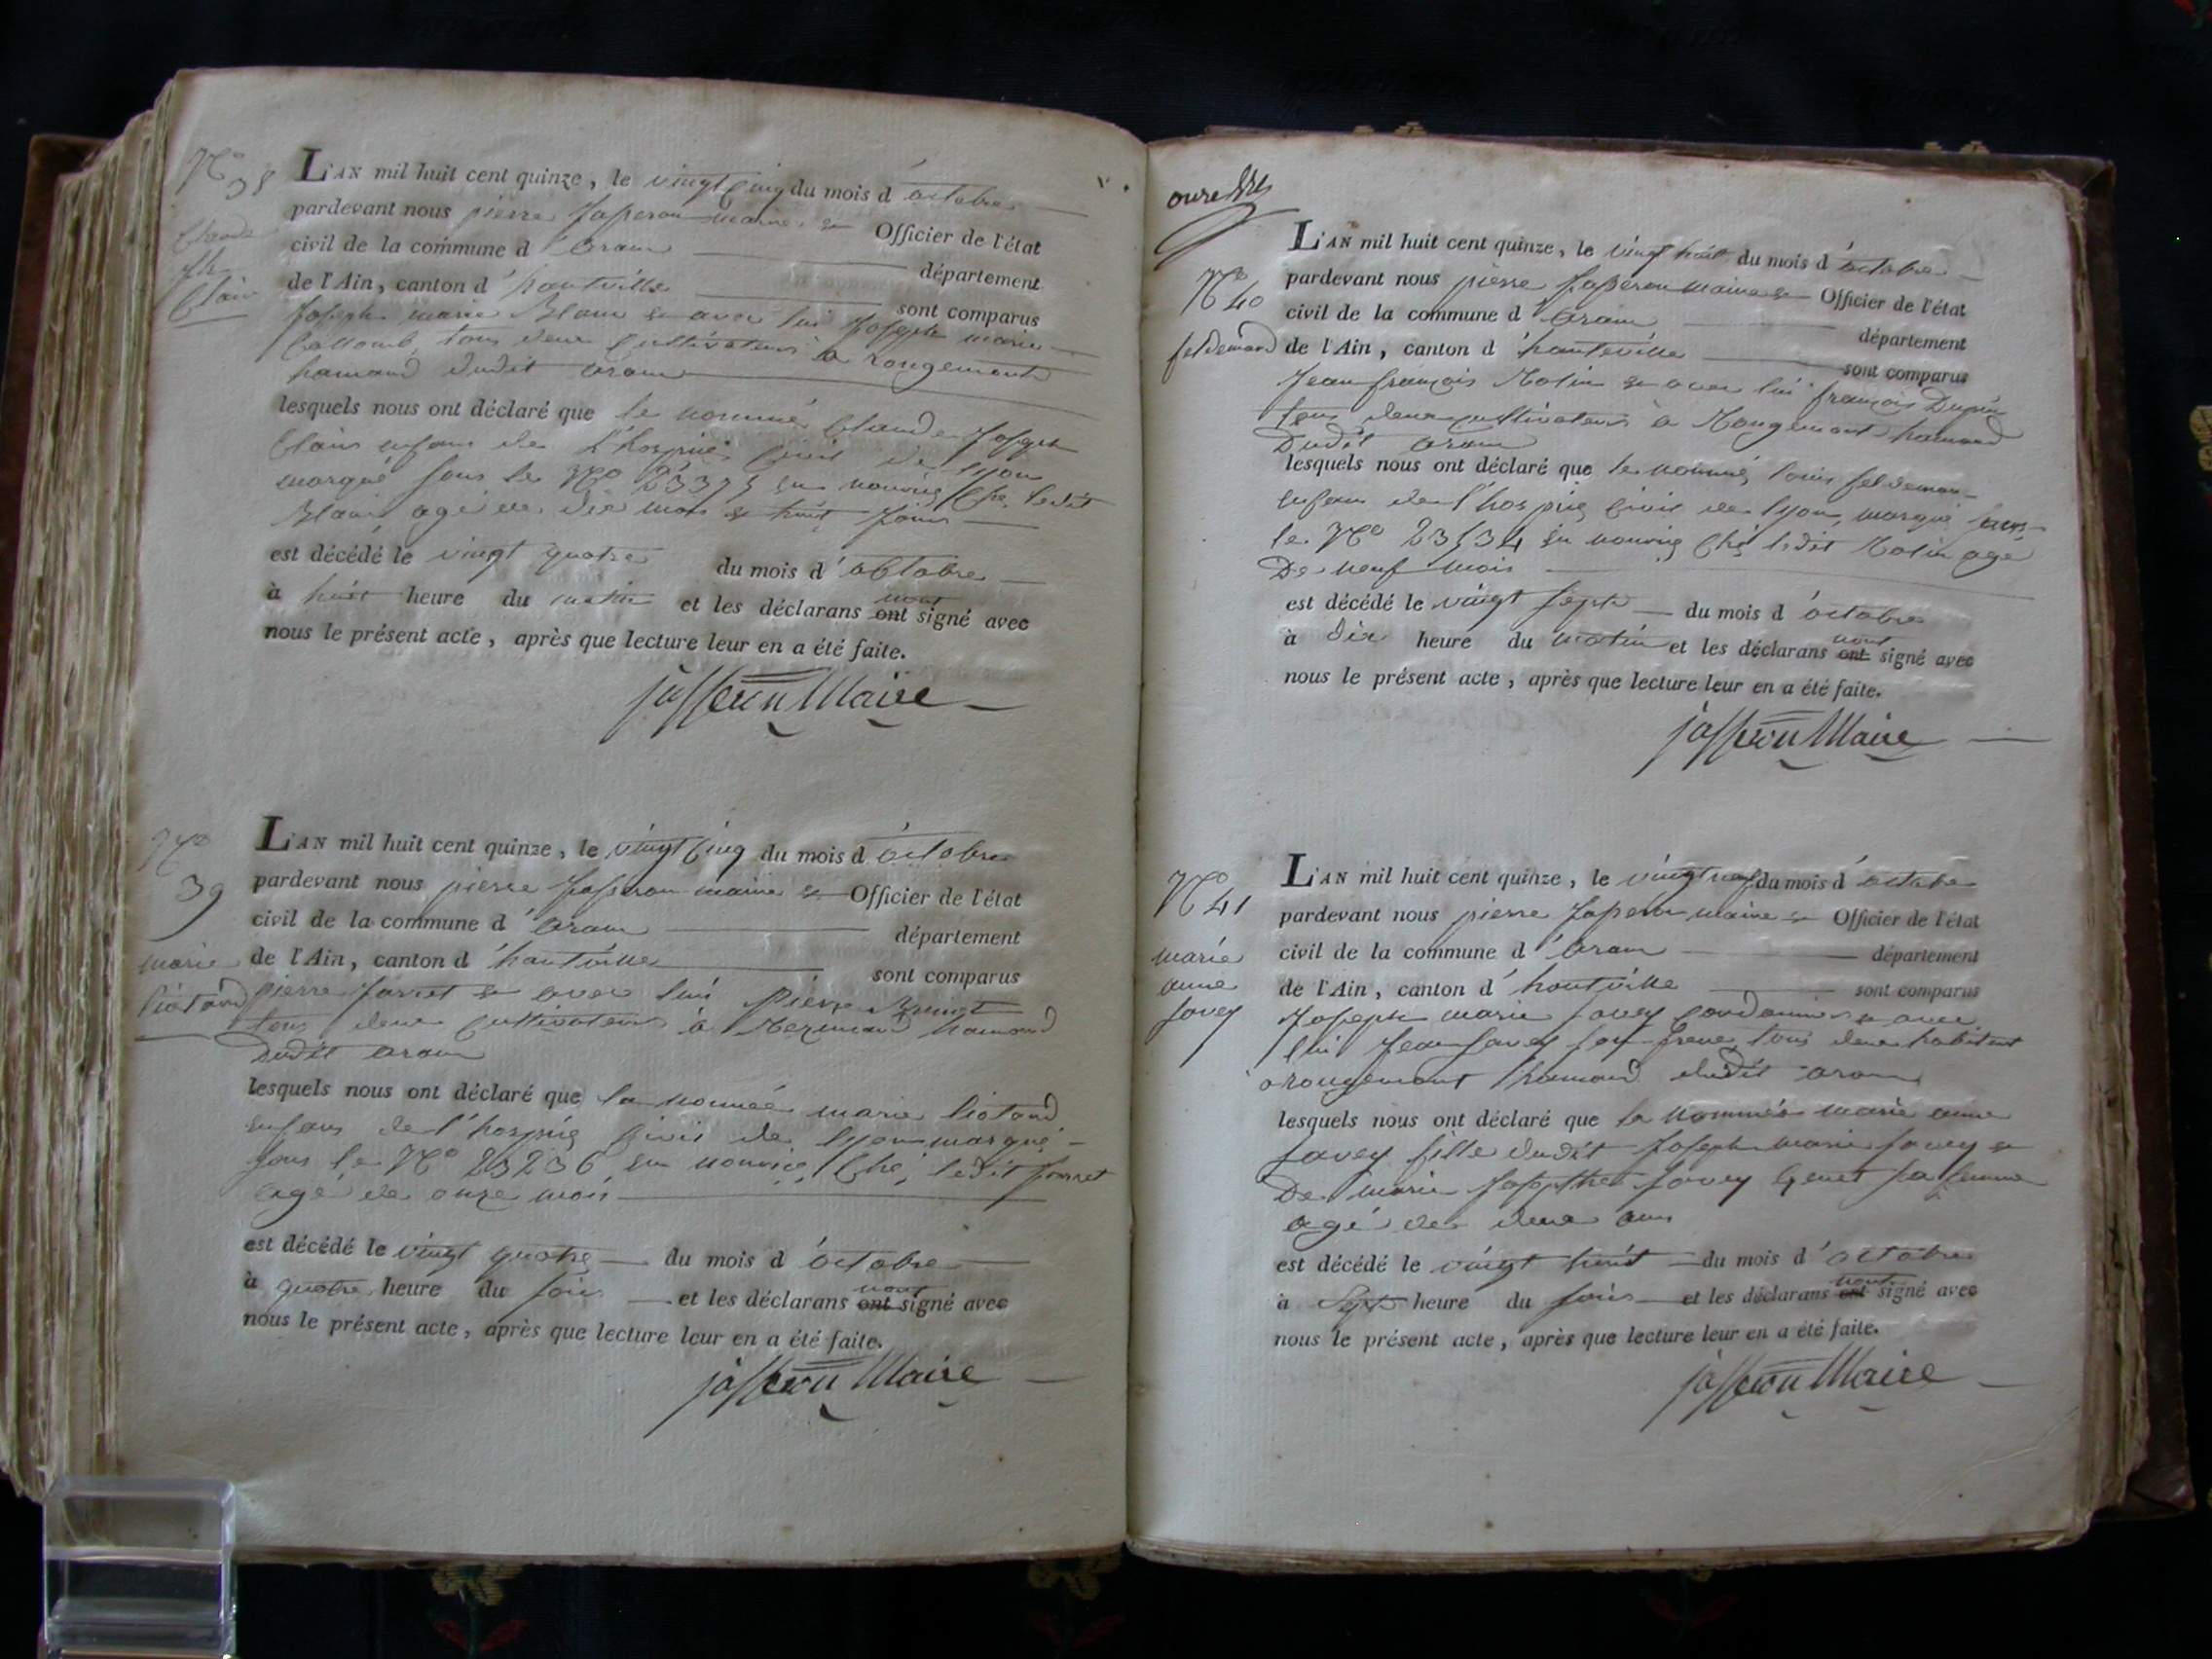 N° 38
L'AN mil huit cent quinze, le vingt cinq du mois d'octobre
pardevant nous pierre Josseron maire & Officier de l'état
civil de la commune d'aranc département
de l'Ain, canton d'hauteville sont comparus
Joseph marie & avec lui Joseph marie
tous deux cultivateurs a rougemont
hamaud dudit aranc
lesquels nous ont déclaré que le nommé Claude Joseph
enfant de l'hospice civil de lyon
marqué sous le N° en nourrice ché ledit
agé de dix mois & huit jours
est décédé le vingt quatre du mois d'octobre
à huit heure du matin et les déclarans nont ont signé avec
nous le présent acte, après que lecture leur en a été faite.
josseron Maire
N° 39
marie
liotard
L'AN mil huit cent quinze, le vingt cinq du mois d'octobre
pardevant nous pierre Josseron maire & Officier de l'état
civil de la commune d'aranc département
de l'Ain, canton d'hauteville sont comparus
pierre & avec lui Pierre
tous deux cultivateurs à hamaud
dudit aranc
lesquels nous ont déclaré que la nommée marie liotard
enfant de l'hospice civil de lyon marqué
sous le N° 23236 en nourrice ché ledit
agé de onze mois
est décédé le vingt quatre du mois d'octobre
à quatre heure du soir et les déclarans nont ont signé avec
nous le présent acte, après que lecture leur en a été faite.
josseron Maire
N° 40
feldemand
L'AN mil huit cent quinze, le vingt huit du mois d'octobre
pardevant nous pierre Josseron maire & Officier de l'état
civil de la commune d'aranc département
de l'Ain, canton d'hauteville sont comparus
Jean françois & avec lui françois Dupin
tous deux cultivateurs a Rougemont hamaud
Dudit aranc
lesquels nous ont déclaré que le nommé louis feldeman
enfant de l'hospice civil de lyon, marqué sous
le N° 23534 en nourrice ché ledit agé
De neuf mois
est décédé le vingt sept du mois d'octobre
à dix heure du matin et les déclarans nont ont signé avec
nous le présent acte, après que lecture leur en a été faite.
josseron Maire
N° 41
marie
anne
Savey
L'AN mil huit cent quinze, le vingt neuf du mois d'octobre
pardevant nous pierre Josseron maire & Officier de l'état
civil de la commune d'aranc département
de l'Ain, canton d'hauteville sont comparus
Joseph marie Savey cordonnier & avec
lui Jean Savey son frere tous deux habitant
a rougemont hamaud dudit aranc
lesquels nous ont déclaré que la nommée marie anne
Savey fille dudit Joseph marie Savey &
De marie Savey sa femme
agé de deux ans
est décédé le vingt huit du mois d'octobre
à Sept heure du soir et les déclarans nont ont signé avec
nous le présent acte, après que lecture leur en a été faite.
josseron Maire